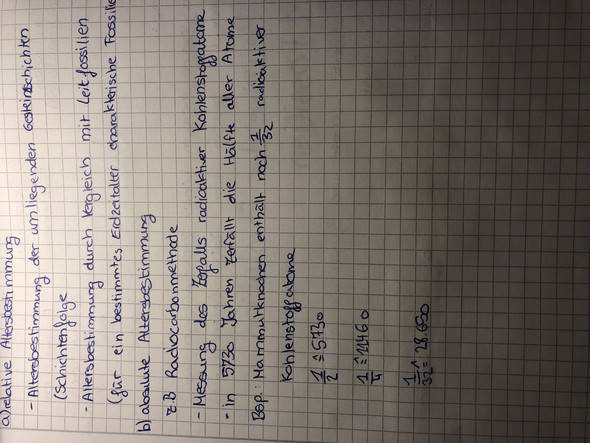 a) relative Altersbestimmung
- Altersbestimmung der umliegenden Gesteinsschichten
(Schichtenfolge
- Altersbestimmung durch Vergleich mit Leitfossilien
(für ein bestimmtes Erdzeitalter charakterische Fossilie
b) absolute Altersbestimmung
z.B Radiocarbonmethode
- Messung das Zerfalls radioaktiver Kohlenstoffatome
- in 5730 Jahren zerfällt die Hälfte aller Atome
Bsp.: Mammutknochen enthält noch 1/32 radioaktiver
Kohlenstoffatome
1/2 ≙ 5730
1/4 ≙ 11460
1/32 ≙ 28.650